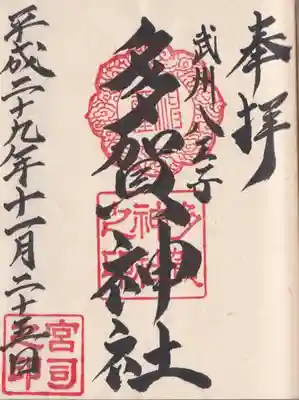 奉拝
武州八王子
多賀神社
平成二十九年十一月二十五日
多賀神社之印
宮司之印